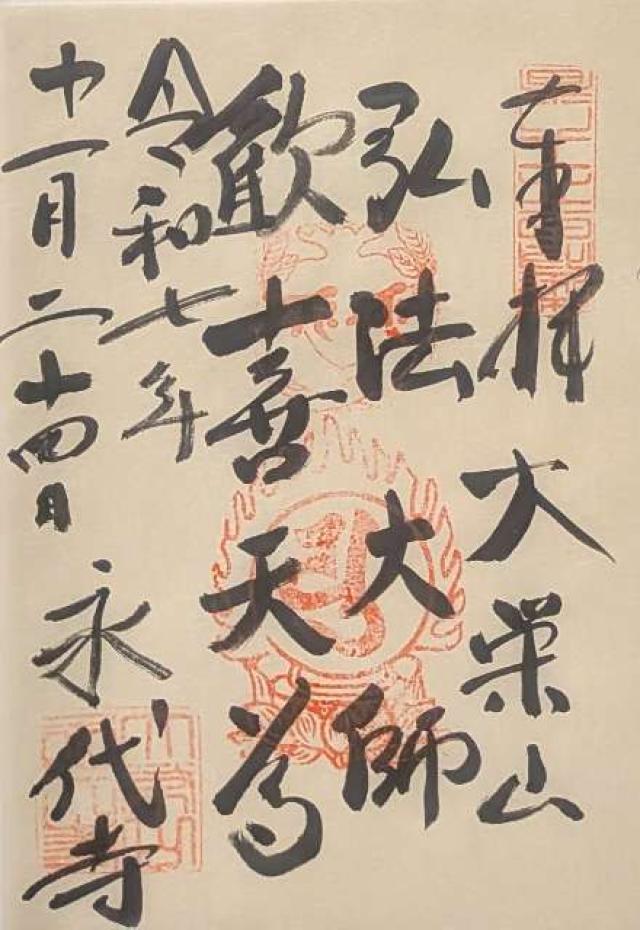 奉拝 大栄山
弘法大師
歓喜天
令和七年
十一月二十四日 永代寺